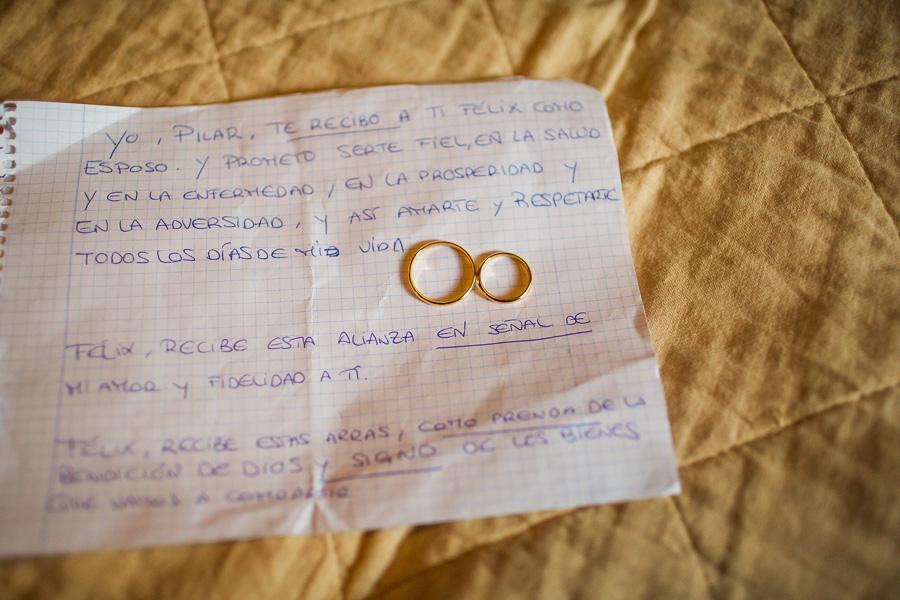 YO, PILAR, TE RECIBO A TI FÉLIX COMO
ESPOSO. Y PROMETO SERTE FIEL, EN LA SALUD
Y EN LA ENFERMEDAD, EN LA PROSPERIDAD Y
EN LA ADVERSIDAD, Y ASÍ AMARTE Y RESPETARTE
TODOS LOS DÍAS DE MI VIDA
FÉLIX, RECIBE ESTA ALIANZA EN SEÑAL DE
MI AMOR Y FIDELIDAD A TÍ.
FÉLIX, RECIBE ESTAS ARRAS, COMO PRENDA DE LA
BENDICIÓN DE DIOS Y SIGNO DE LOS BIENES
QUE VAMOS A COMPARTIR